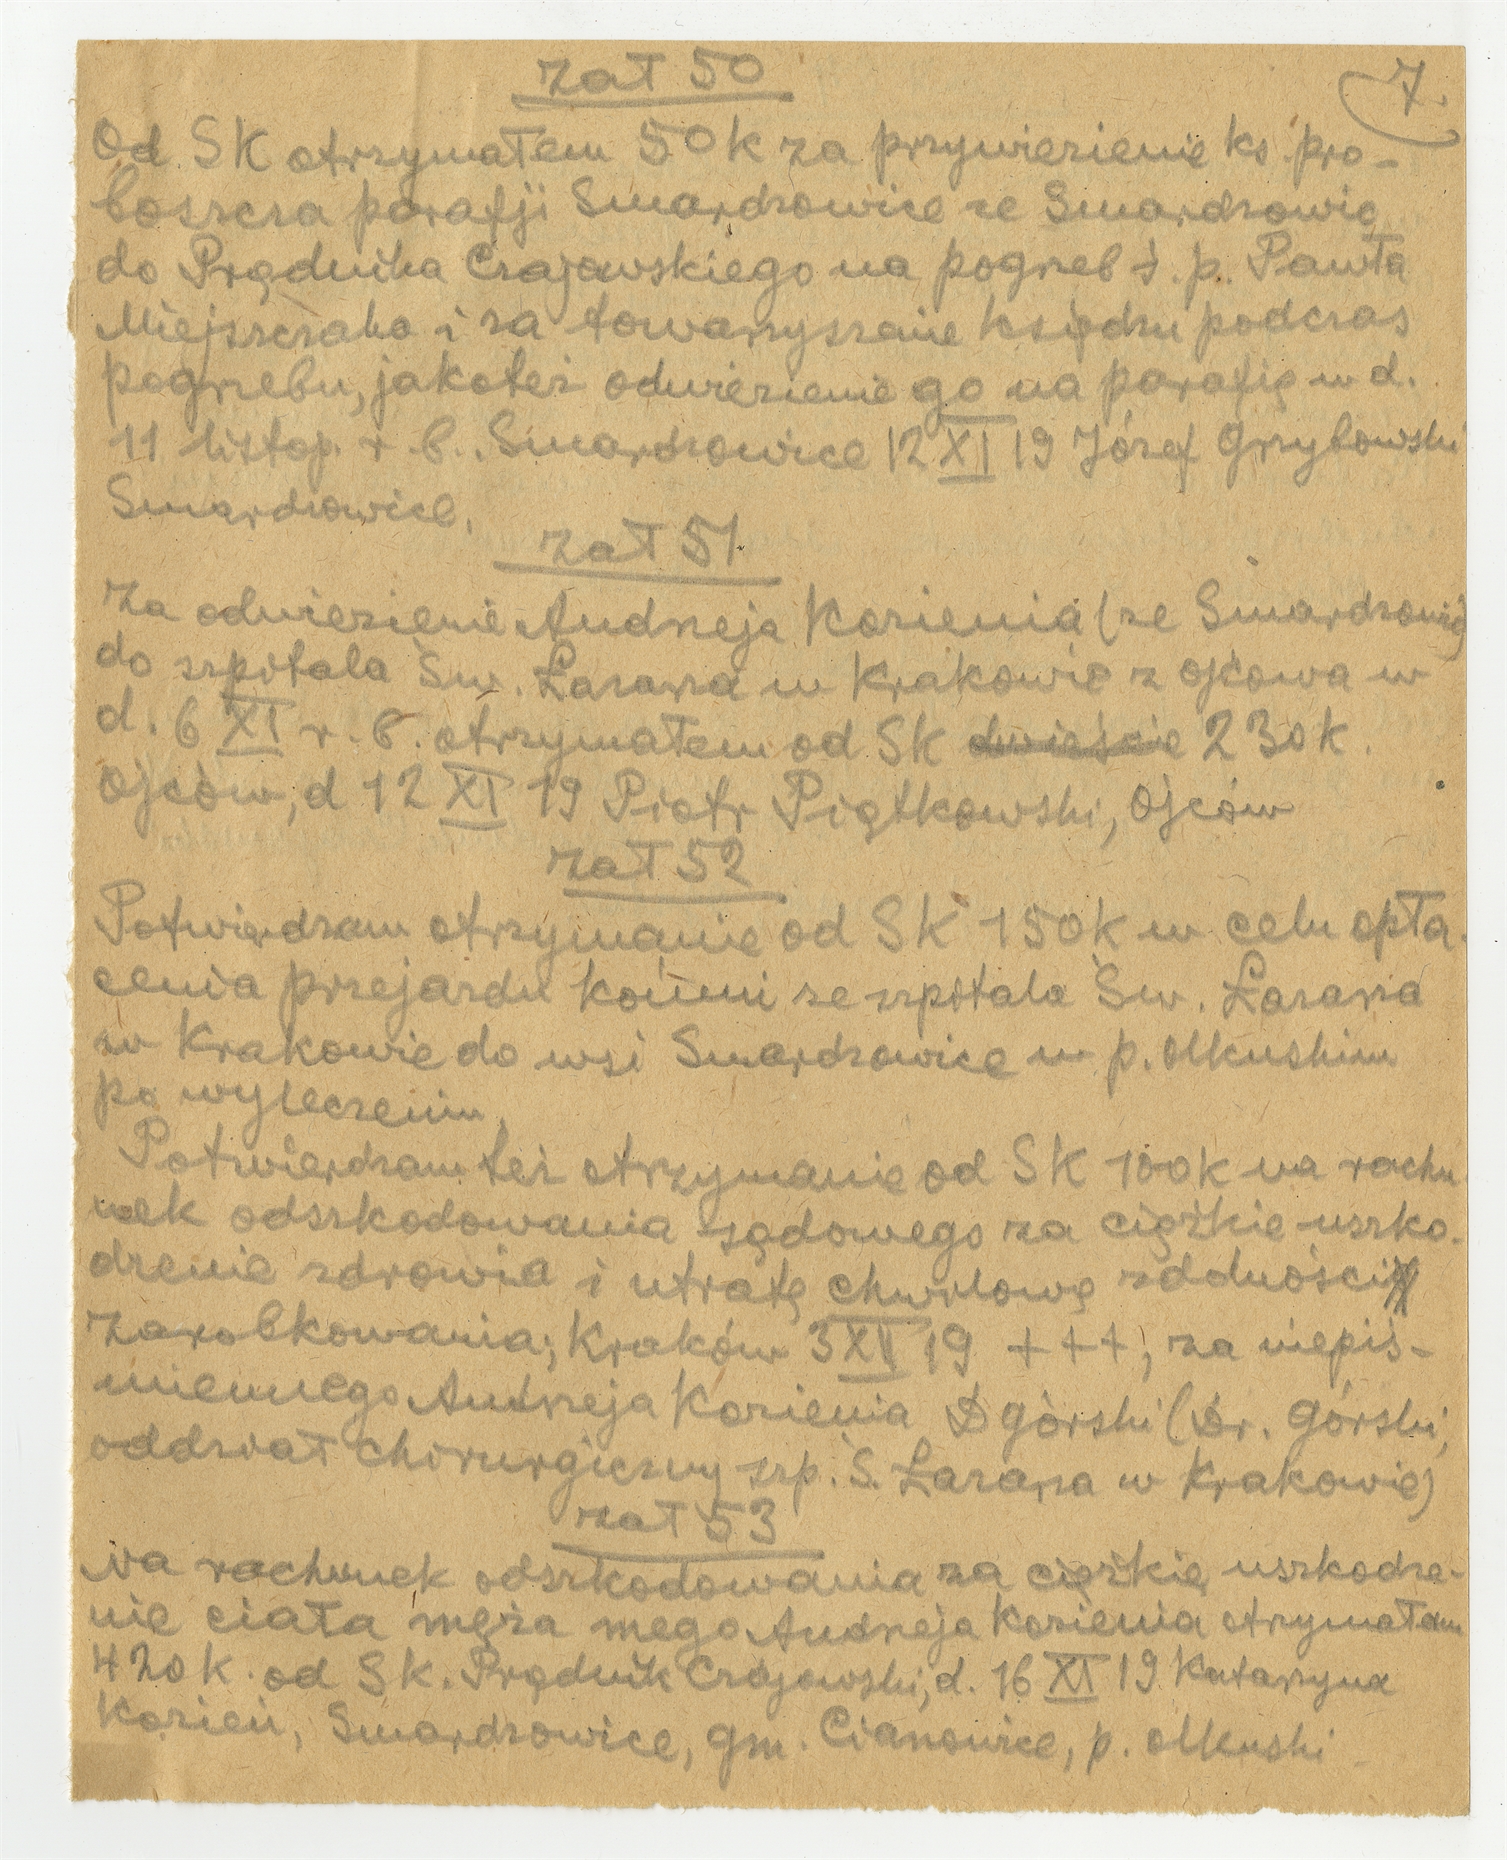 7.
zał 50
Od SK otrzymałem 50k za przywiezienie ks. pro-
boszcza parafji Smardzowice ze Smardzowic
do Prądnika Czajowskiego na pogrzeb ś. p. Pawła
Miejszczaka i za towarzyszenie księdzu podczas
pogrzebu, jakoteż odwiezienie go na parafię w d.
11 listop. r. b.. Smardzowice 12 XI 19 Józef Grzybowski
Smardzowice.
zał 51
Za odwiezienie Andrzeja Kozienia (ze Smardzowic)
do szpitala Św. Łazarza w Krakowie z Ojcowa w
d. 6 XI r. b. otrzymałem od SK dwieście 230k.
Ojców, d 12 XI 19 Piotr Piątkowski, Ojców
zał 52
Potwierdzam otrzymanie od SK 150k w celu opła-
cenia przejazdu końmi ze szpitala Św. Łazarza
w Krakowie do wsi Smardzowice w p. olkuskim
po wyleczeniu.
Potwierdzam też otrzymanie od SK 100k na rachu
nek odszkodowania sądowego za ciężkie uszko-
dzenie zdrowia i utratę chwilową zdolności
zarobkowania; Kraków 3 XII 19 +++, za niepiś-
miennego Andrzeja Kozienia D Górski (Dr. Górski,
oddział chirurgiczny szp. Ś. Łazarza w Krakowie)
zał 53
Na rachunek odszkodowania za ciężkie uszkodze-
nie ciała męża mego Andrzeja Kozienia otrzymałam
420k. od SK. Prądnik Czajowski, d. 16 XI 19 Katarzyna
Kozień, Smardzowice, gm. Cianowice, p. olkuski